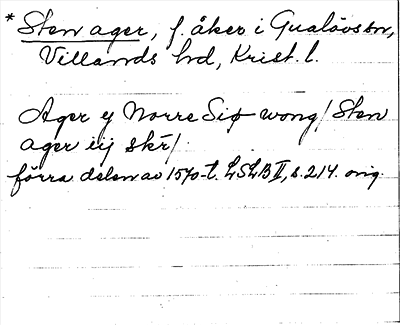 * Sten ager, f. åker i Gualövs sn,
Villands hd, Krist. l.
Ager y Norre Siø wong / Sten
ager iij skr /
förra delen av 1570-t. LSLB II, s. 214. orig.